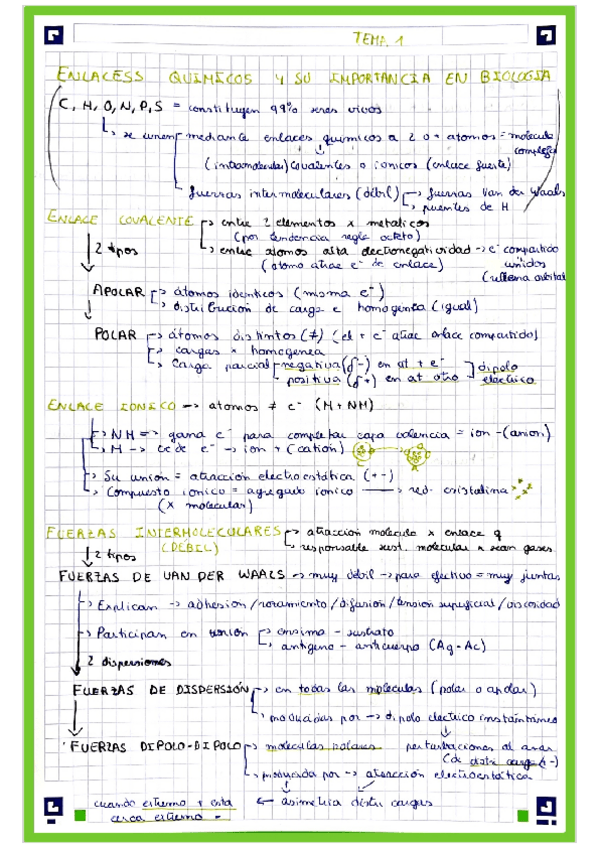 TEMA 1
ENLACESS QUIMICOS Y SU IMPORTANCIA EN BIOLOGIA
C, H, O, N, P, S = constituyen 99% seres vivos
se unen mediante enlaces quimicos a 2 o + atomos = molecula compleja
(intramolecular) covalentes o ionicos (enlace fuerte)
fuerzas intermoleculares (débil) → fuerzas Van der Waals
→ puentes de H
ENLACE COVALENTE → entre 2 elementos x metalicos
(por tendencia regla octeto)
2 tipos
→ entre atomos alta electronegatividad → e⁻ compartido unidos
(atomo atrae e⁻ de enlace) (ultima orbital
APOLAR → átomos identicos (misma e⁻)
→ distribucion de carga e⁻ homogenea (igual)
POLAR → átomos distintos (≠) (el + e⁻ atrae enlace compartido)
→ cargas x homogenea
→ Carga parcial negativa (δ-) en at + e⁻
positiva (δ+) en at otro
dipolo electrico
ENLACE IONICO → atomos ≠ e⁻ (M + NM)
→ NM → gana e⁻ para completar capa valencia = ion - (anion)
→ M → cede e⁻ → ion + (cation)
→ Su unión = atracción electrostática (+ -)
→ Compuesto ionico = agregado ionico → red cristalina
(x molecular)
FUERZAS INTERMOLECULARES → atracción molecula x enlace q
(DEBIL) → responsable sust. molecular x sean gases.
2 tipos
FUERZAS DE VAN DER WAALS → muy débil → para efectivo = muy juntas
→ Explican → adhesion / rozamiento / difusión / tensión superficial / viscosidad
→ Participan en unión → enzima - sustrato
→ antigeno - anticuerpo (Ag - Ac)
2 dispersiones
FUERZAS DE DISPERSIÓN → en todas las moleculas (polar o apolar)
→ producidas por → dipolo electrico instantáneo
perturbaciones al azar
(de distri cargas -)
FUERZAS DIPOLO-DIPOLO → moleculas polares
→ producida por → atracción electrostática
← asimetria distri cargas
cuando extremo + esta
cerca extremo -